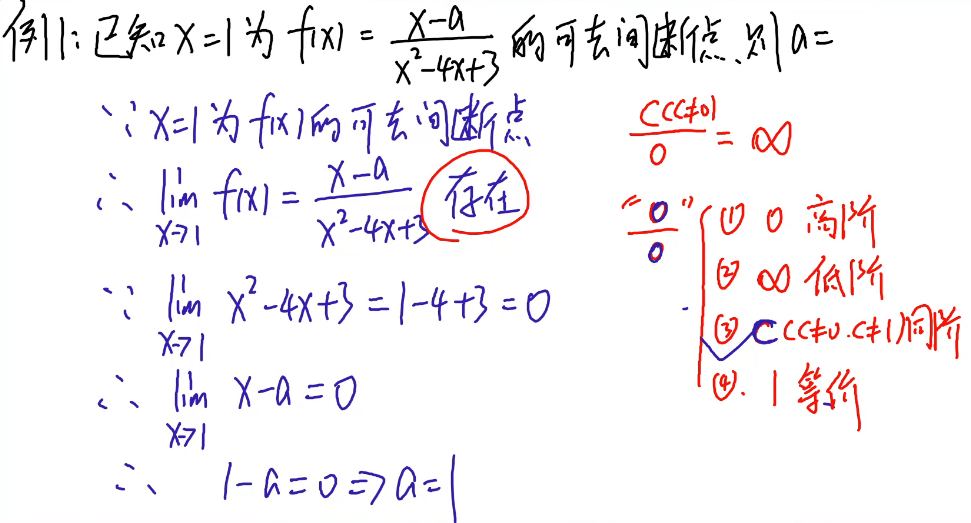 例1:已知x=1为f(x)=(x-a)/(x²-4x+3)的可去间断点、则a=
∵x=1为f(x)的可去间断点
∴ lim x→1 f(x)=(x-a)/(x²-4x+3) 存在
∵ lim x→1 x²-4x+3=1-4+3=0
∴ lim x→1 x-a=0
∴ 1-a=0⇒a=1
C(C≠0)/0=∞
"0/0"
(1) 0 高阶
(2) ∞ 低阶
(3) C(C≠0.C≠1)同阶
(4). 1 等价